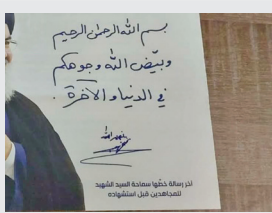 بسم الله الرحمن الرحيم
وبيّض الله وجوهكم
في الدنيا والآخرة.
آخر رسالة خطّها سماحة السيد الشهيد
للمجاهدين قبل استشهاده